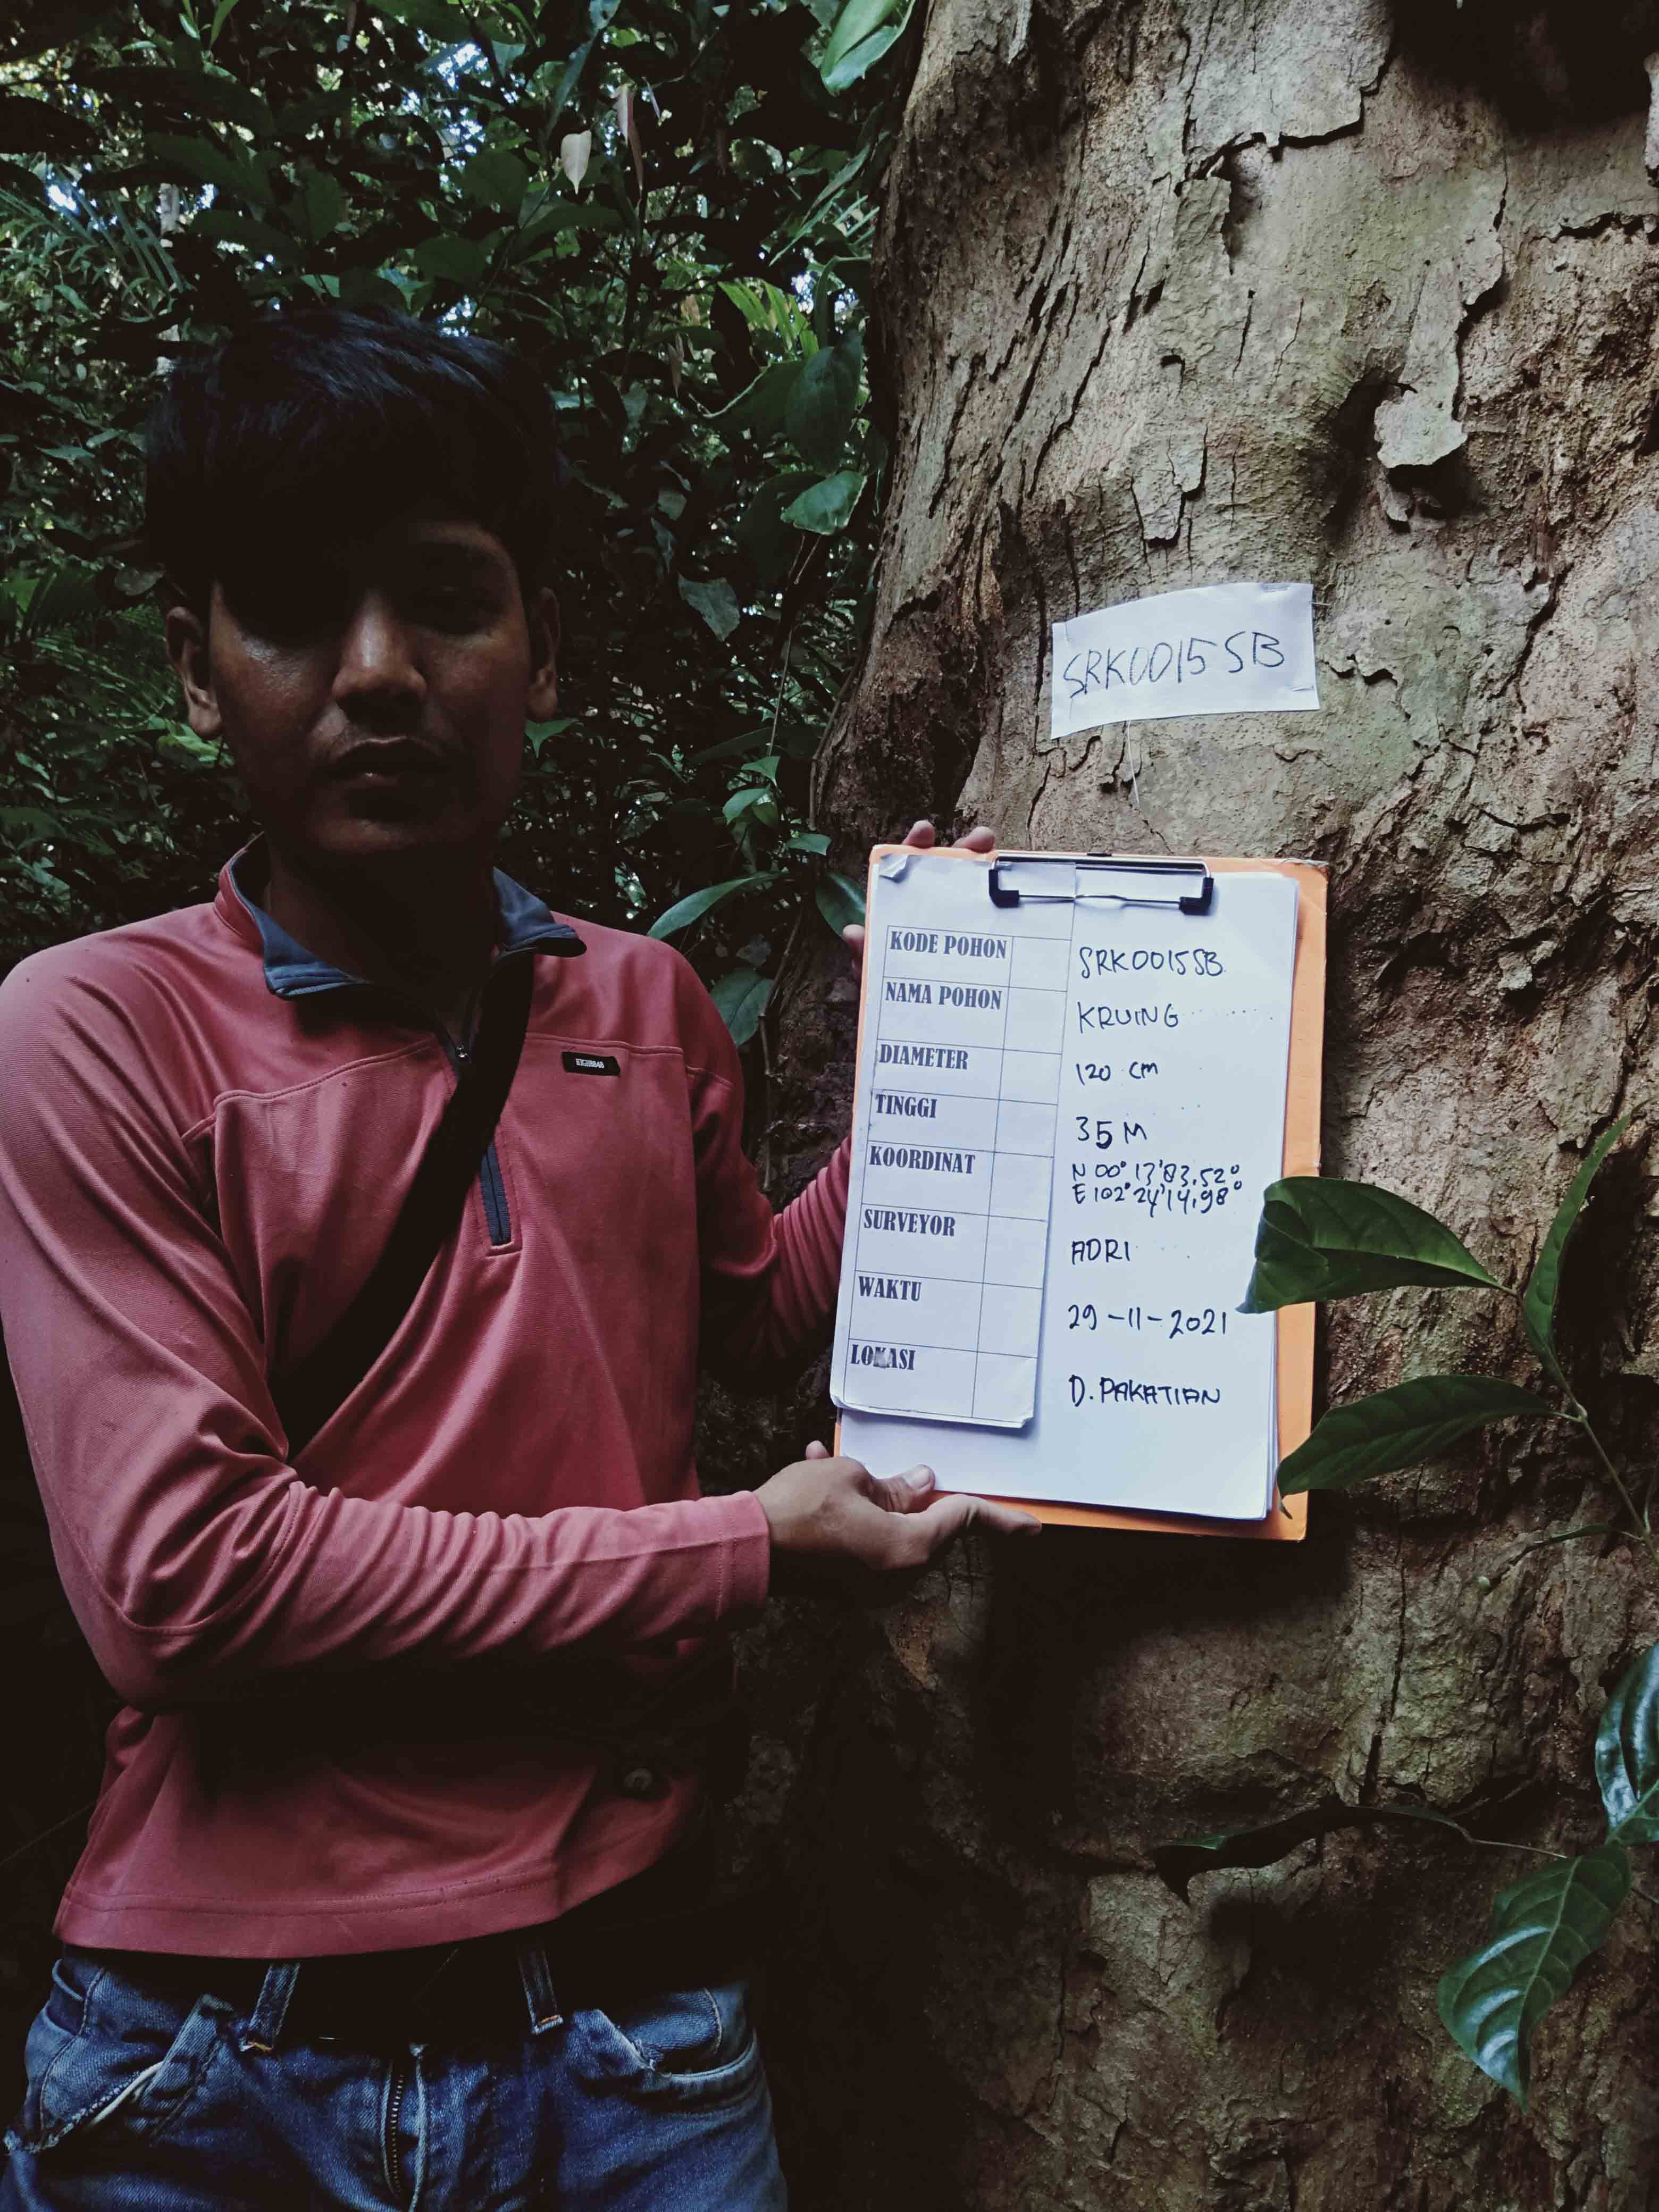 SRK0015SB
KODE POHON SRK0015SB
NAMA POHON KRUING
DIAMETER 120 CM
TINGGI 35 M
KOORDINAT N 00° 13'83,52°
E 102° 24'14,98°
SURVEYOR ADRI
WAKTU 29-11-2021
LOKASI D. PAKATIAN